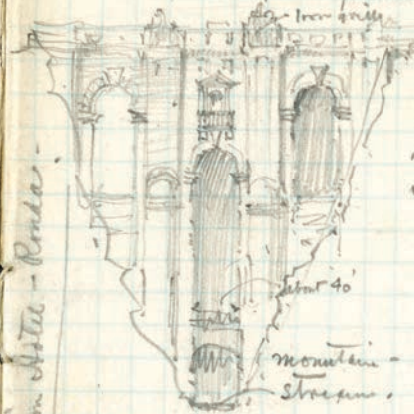 Iron grille
about 40'
mountain -
stream.
Hotel - Ronda -